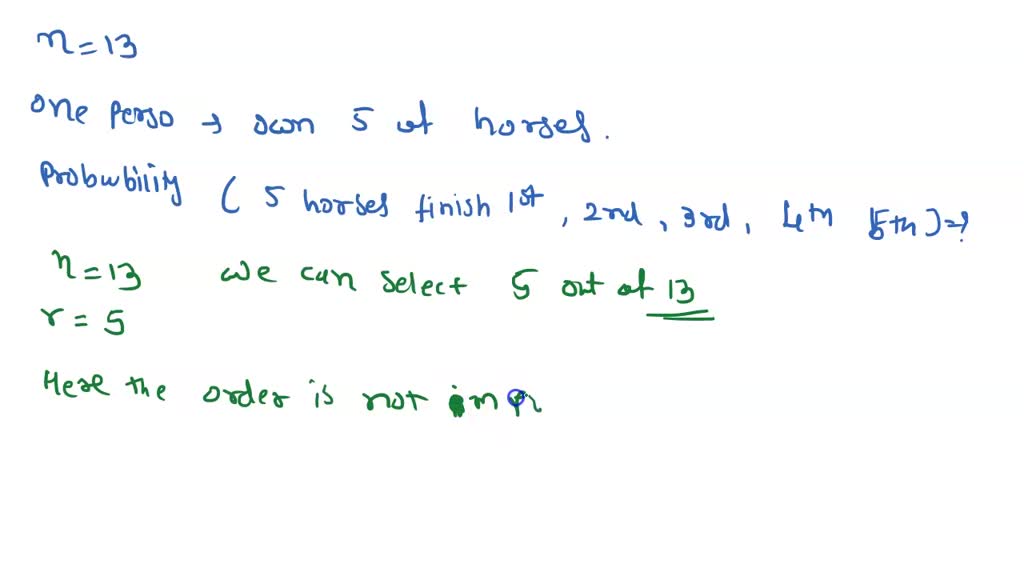 n = 13
One perso → own 5 of horses.
Probubility ( 5 horses finish 1st, 2nd, 3rd, 4th 5th ) = ?
n = 13 we can select 5 out of 13
r = 5
Here the order is not im